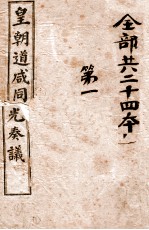 全部共二十四本
第一
皇朝道咸同光奏議